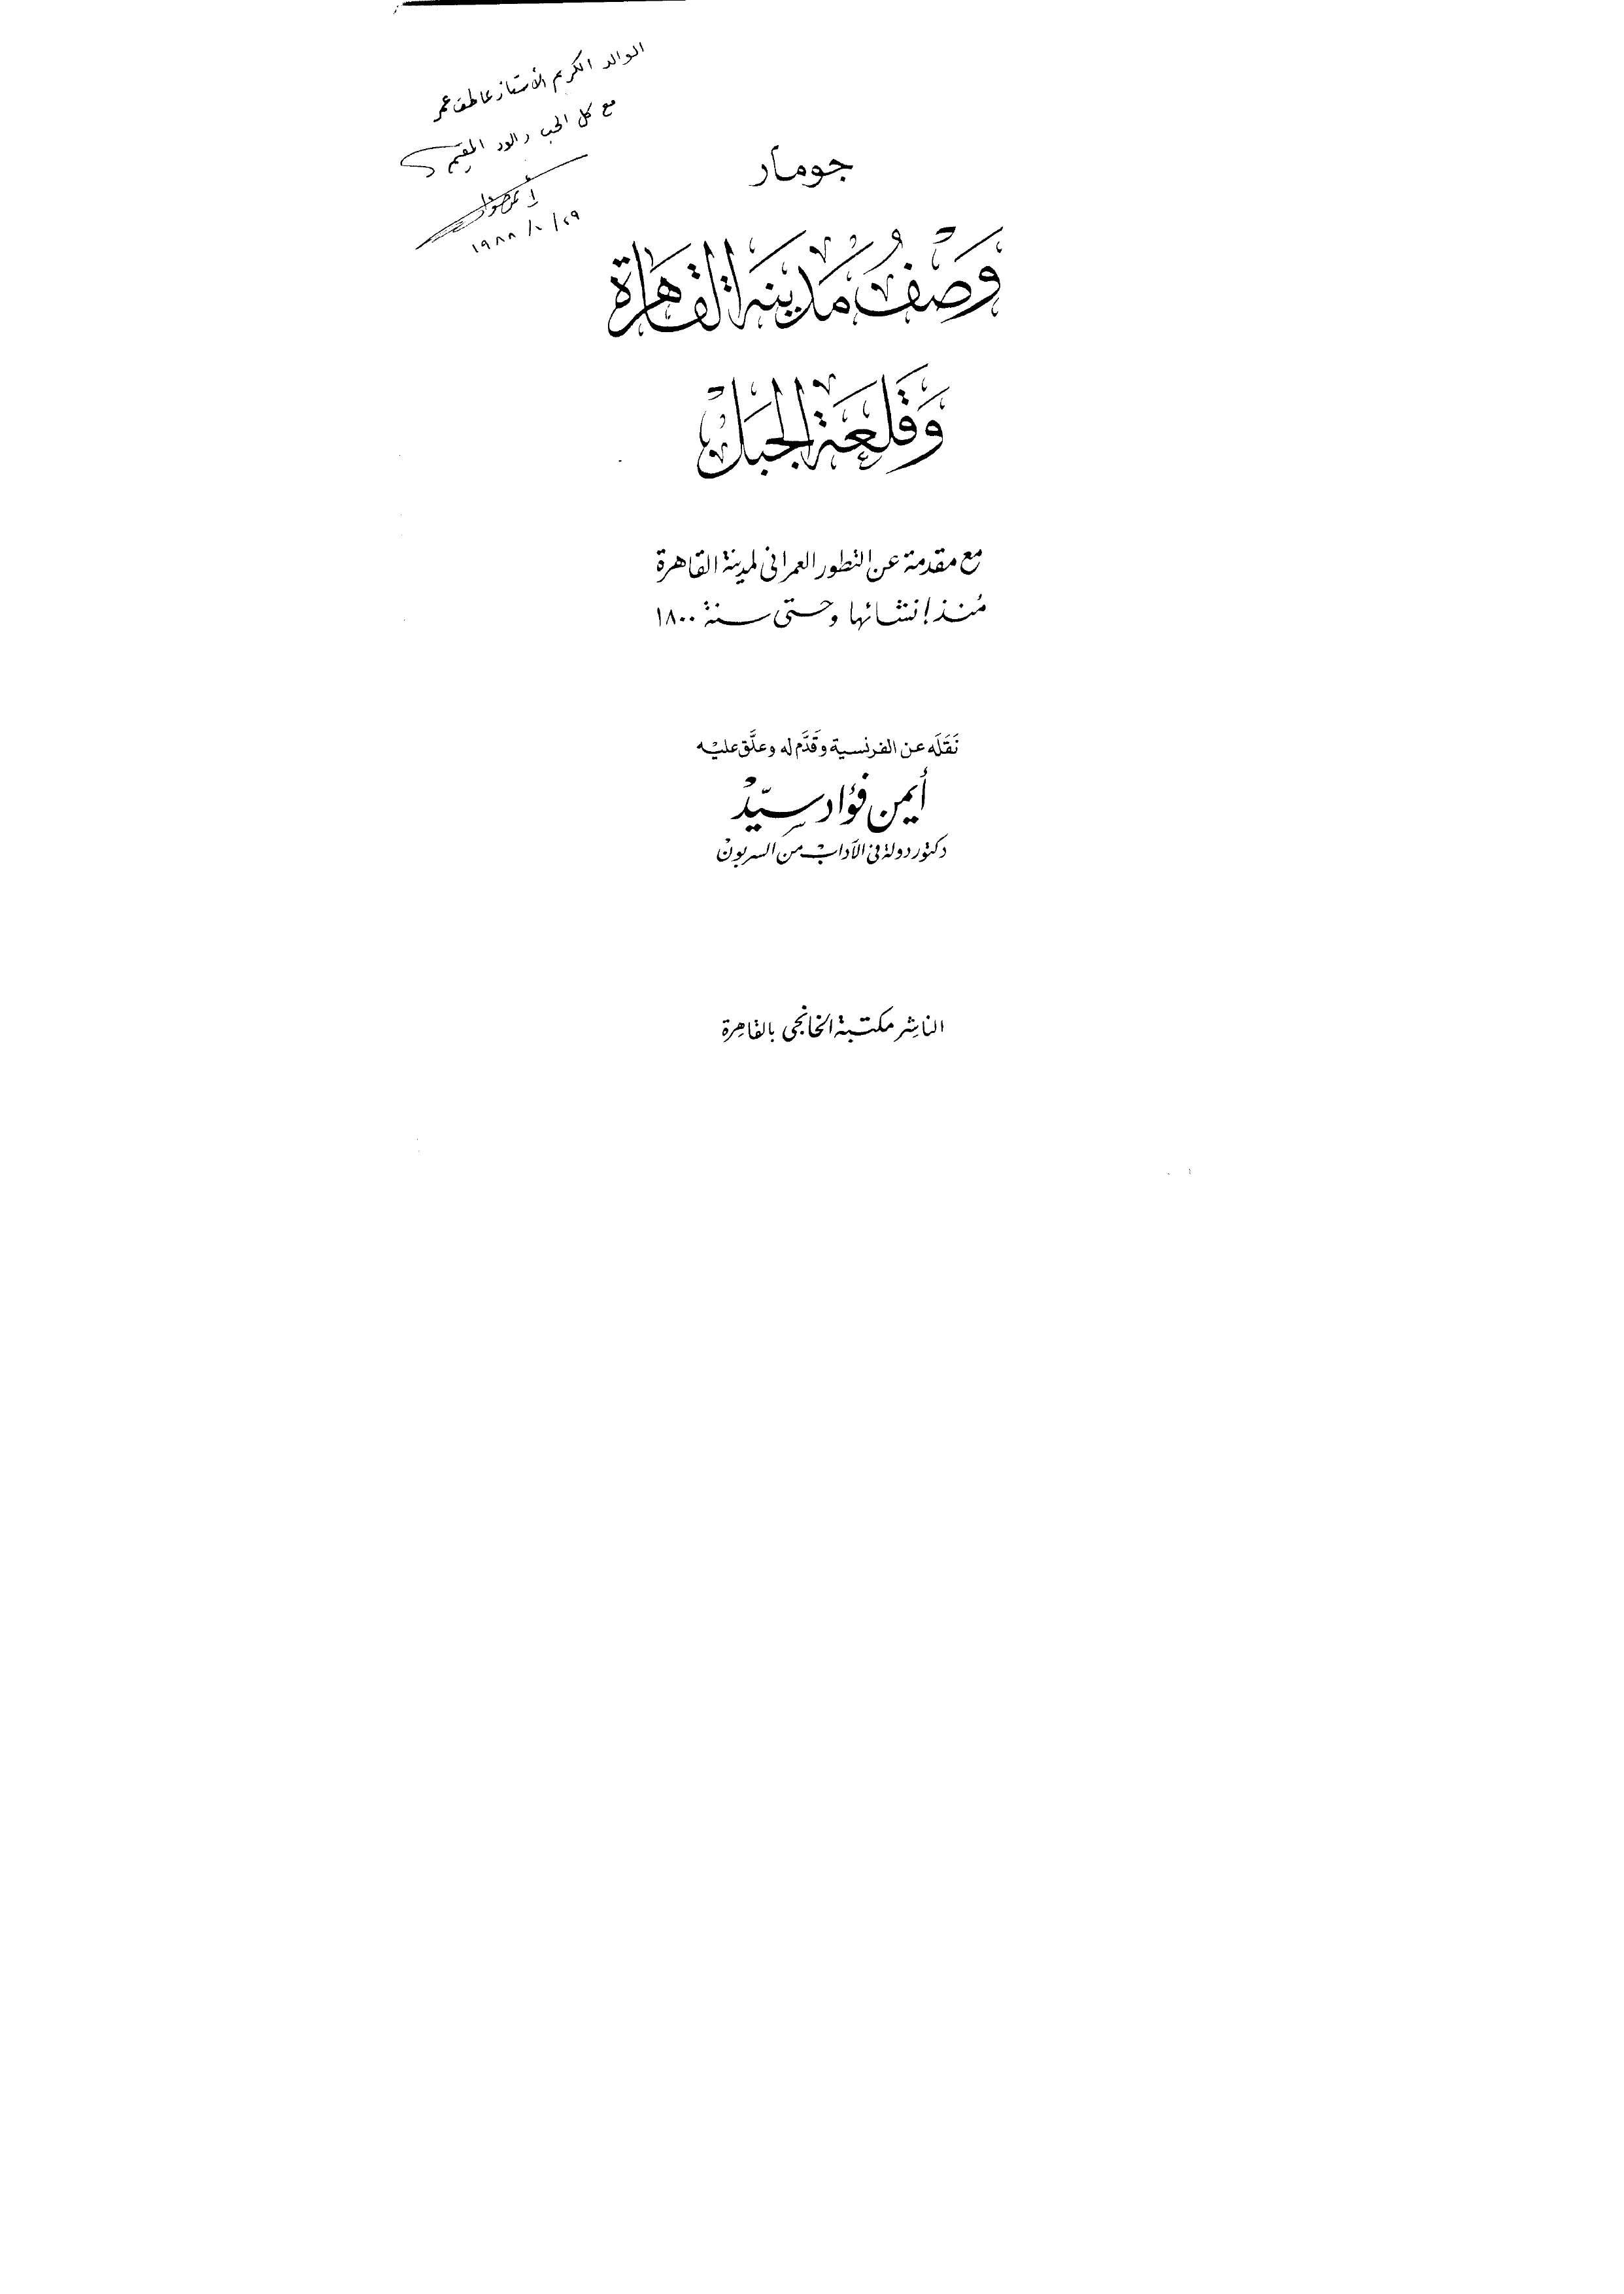 الوالد الكريم الأستاذ عاطف عمر
مع كل الحب والود المقيم
١٩٨٨
جومار
وَصْفُ مَدِينَة القَاهِرَة
وَقَلعَة الجَبَل
مع مقدمة عن التطور العمرانى لمدينة القاهرة
مُنذ إنشائها وحتى سنة ١٨٠٠
نَقَلَه عن الفرنسية وقَدَّم له وعلَّق عليه
أيمن فؤاد سيّد
دكتور دولة فى الآداب من السربون
الناشر مكتبة الخانجى بالقاهرة